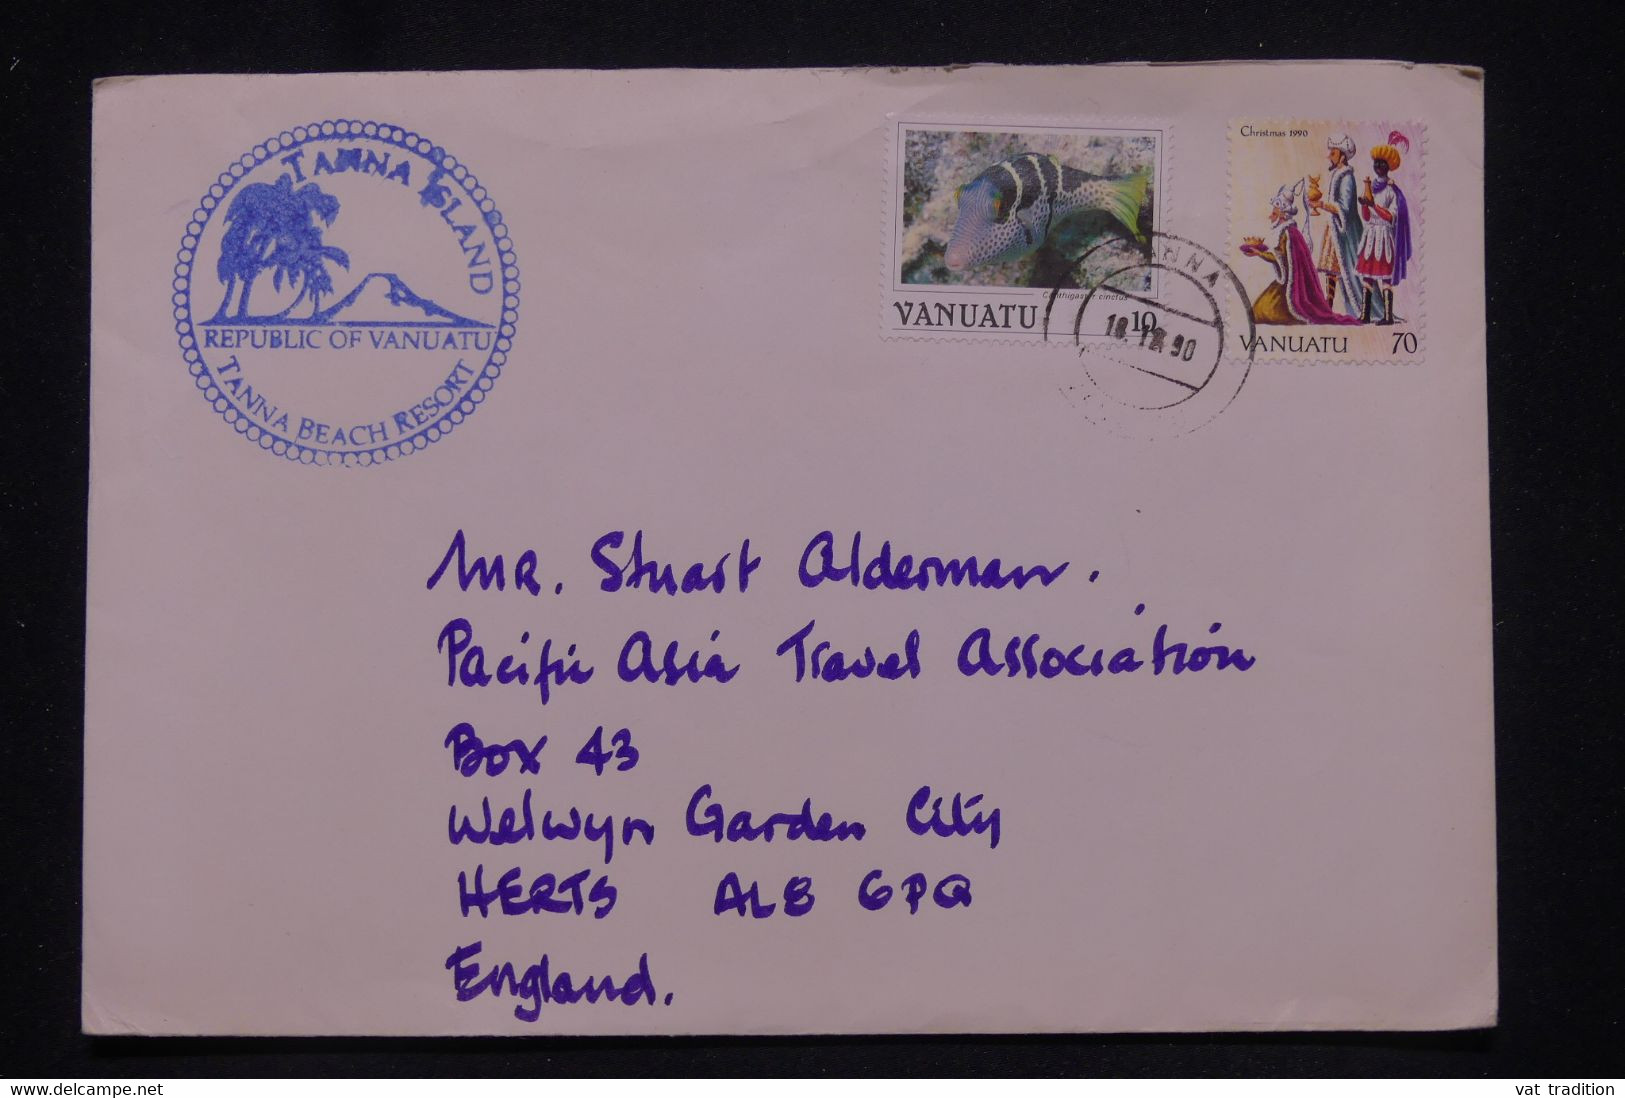 TANNA ISLAND
REPUBLIC OF VANUATU
TANNA BEACH RESORT
Canthigaster cinctus
VANUATU 10
Christmas 1990
VANUATU 70
TANNA
18.12.90
MR. Stuart Alderman.
Pacific Asia Travel Association
Box 43
Welwyn Garden City
HERTS AL8 6PQ
England.
delcampe.net
vat tradition